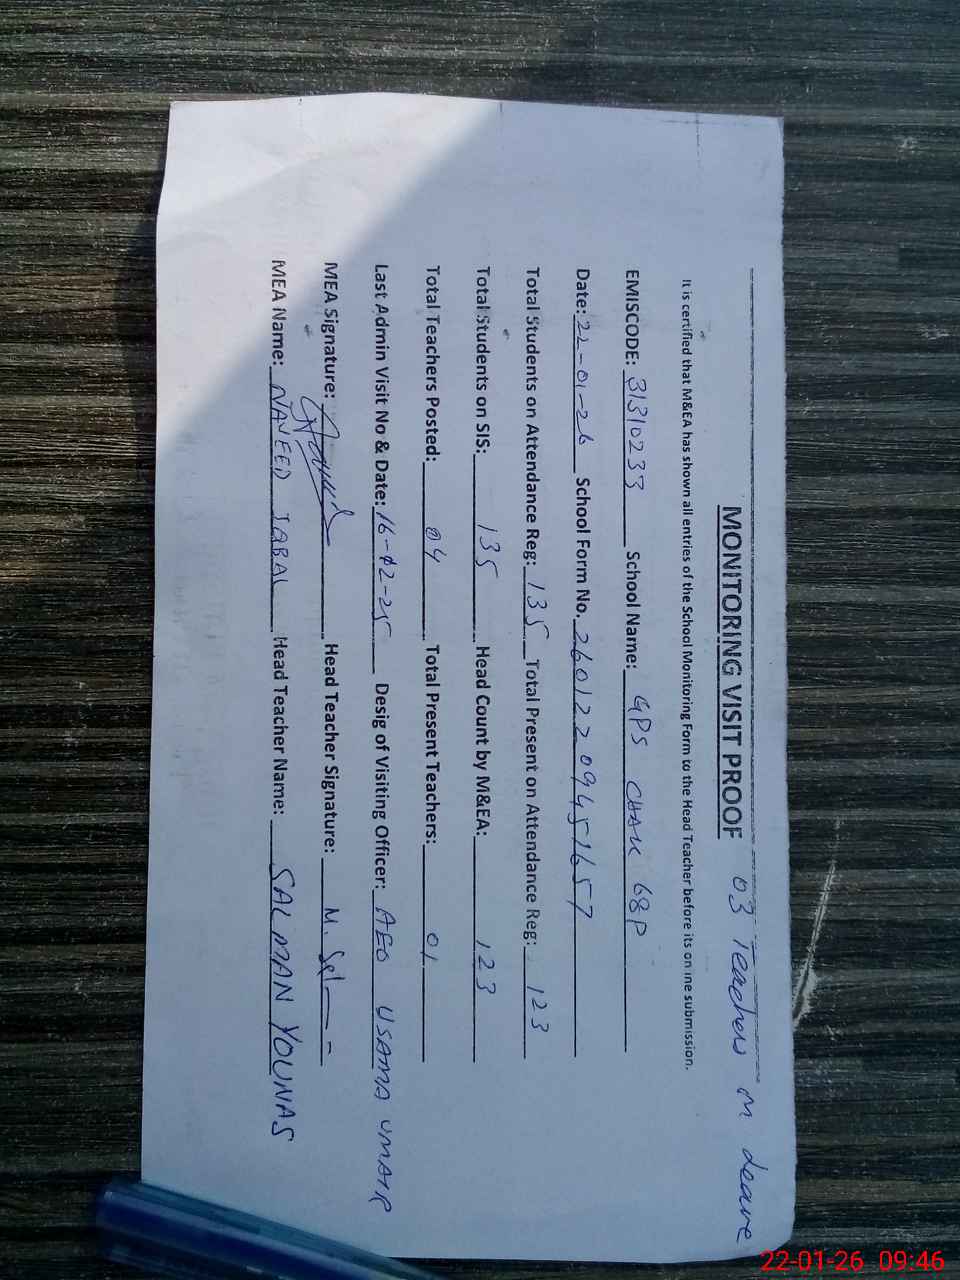 03 Teachers on Leave
MONITORING VISIT PROOF
It is certified that M&EA has shown all entries of the School Monitoring Form to the Head Teacher before its on ine submission.
EMISCODE: 31310233 School Name: GPS CHAK 68P
Date: 22-01-26 School Form No. 260122094516 57
Total Students on Attendance Reg: 135 Total Present on Attendance Reg: 123
Total Students on SIS: 135 Head Count by M&EA: 123
Total Teachers Posted: 04 Total Present Teachers: 01
Last Admin Visit No & Date: 16-12-25 Desig of Visiting Officer: AEO USAMA UMAIR
MEA Signature: Head Teacher Signature: M. Sal
MEA Name: NAVEED IQBAL Head Teacher Name: SALMAN YOUNAS
22-01-26 09:46